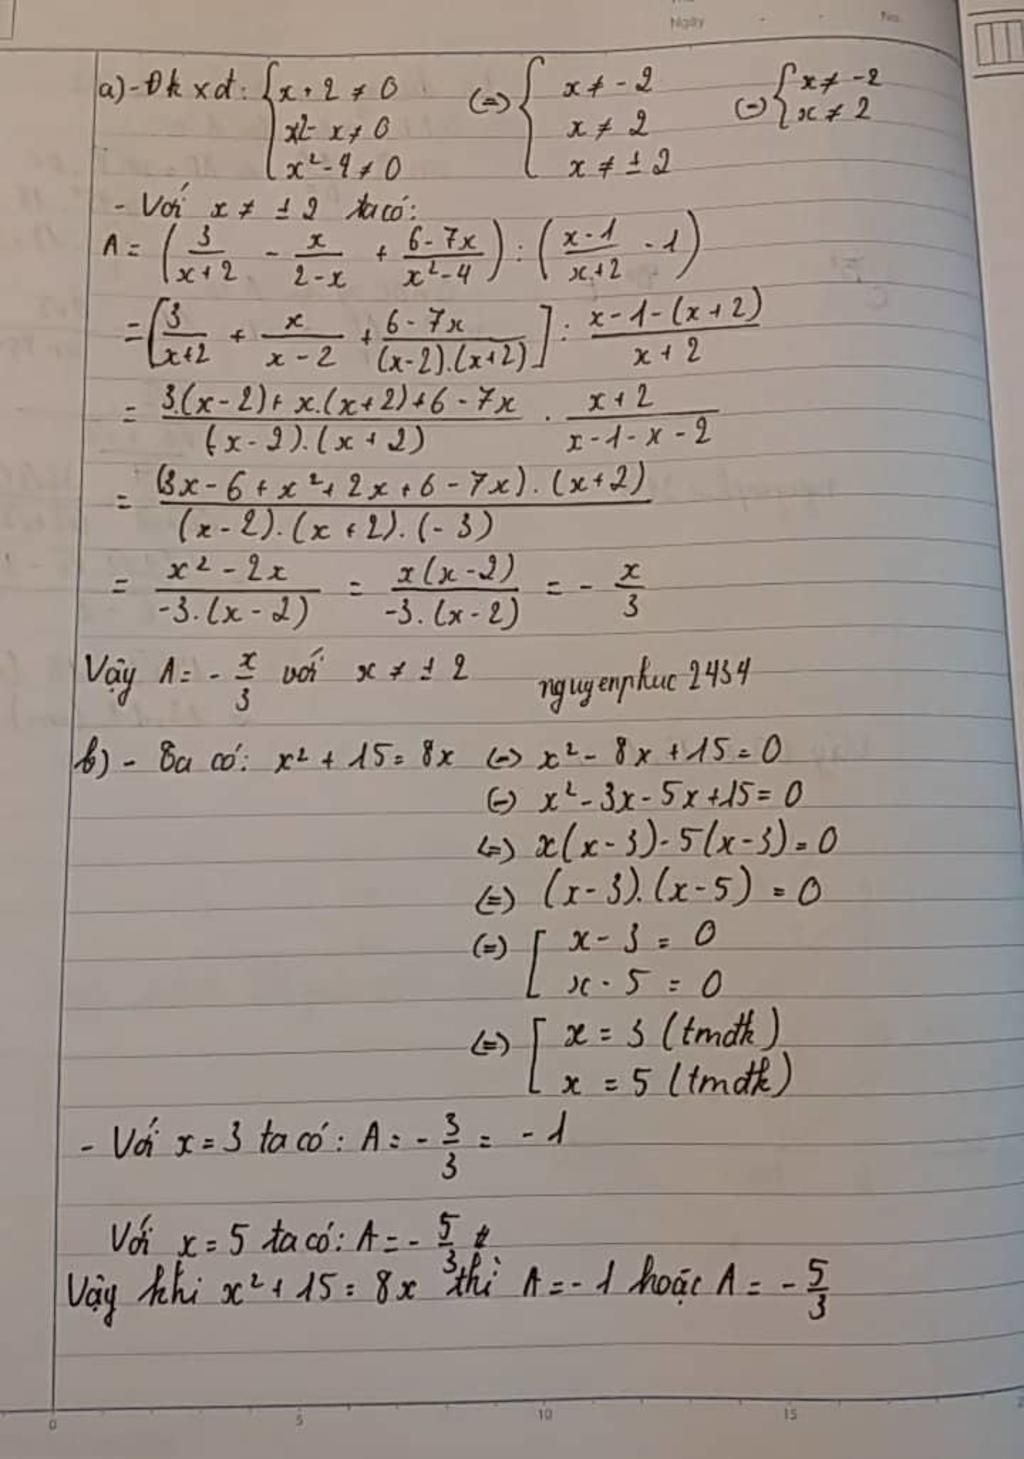 Ngày - - No.
a) - Đkxđ: { x + 2 ≠ 0 (=) { x ≠ -2 (=) { x ≠ -2
x2 - x ≠ 0 x ≠ 2 x ≠ 2
x² - 4 ≠ 0 x ≠ ± 2
- Với x ≠ ± 2 ta có:
A = (3/(x+2) - x/(2-x) + (6-7x)/(x²-4)) : ((x-1)/(x+2) - 1)
= [3/(x+2) + x/(x-2) + (6-7x)/((x-2).(x+2))] : (x-1-(x+2))/(x+2)
= (3.(x-2)+x.(x+2)+6-7x)/((x-2).(x+2)) . (x+2)/(x-1-x-2)
= ((3x-6+x²+2x+6-7x).(x+2))/((x-2).(x+2).(-3))
= (x²-2x)/(-3.(x-2)) = (x(x-2))/(-3.(x-2)) = - x/3
Vậy A = - x/3 với x ≠ ± 2 nguyenphuc2434
b) - Ta có: x² + 15 = 8x (=) x² - 8x + 15 = 0
(=) x² - 3x - 5x + 15 = 0
(=) x(x-3) - 5(x-3) = 0
(=) (x-3).(x-5) = 0
(=) [ x - 3 = 0
x - 5 = 0
(=) [ x = 3 (tmđk)
x = 5 (tmđk)
- Với x = 3 ta có: A = - 3/3 = - 1
Với x = 5 ta có: A = - 5/3
Vậy khi x² + 15 = 8x thì A = - 1 hoặc A = - 5/3
0 5 10 15